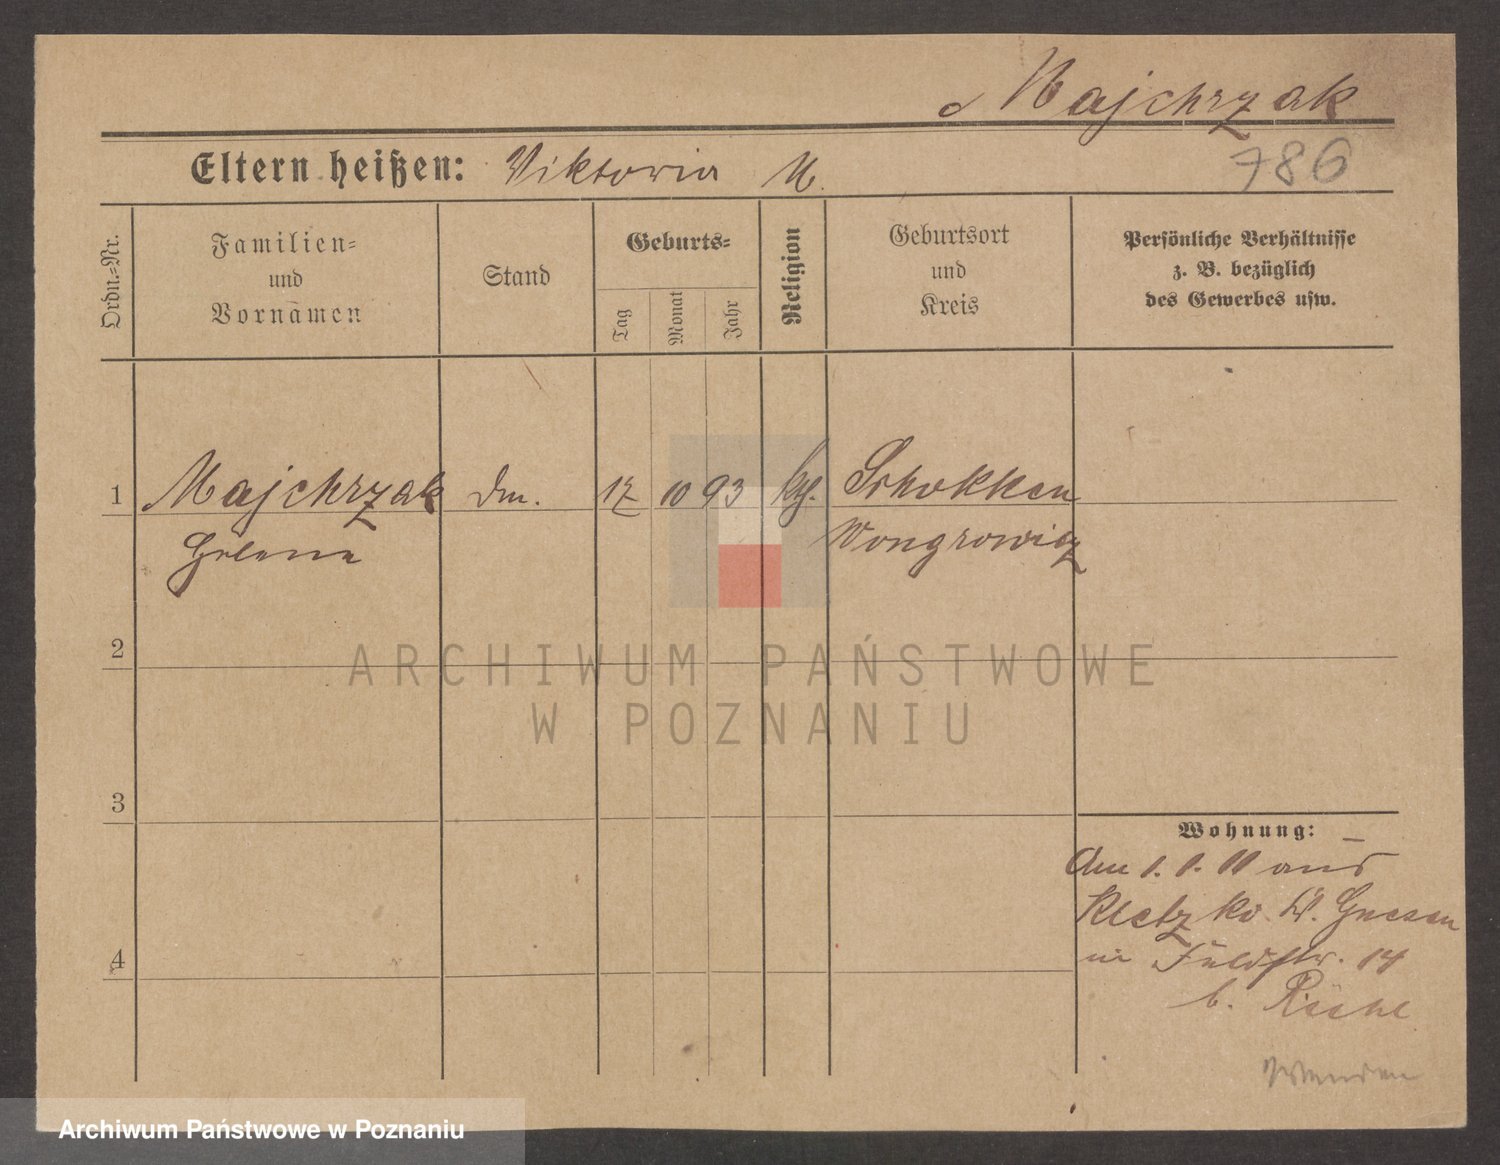 Majchrzak
Eltern heißen: Viktoria M.
786
Ordn.-Nr.
Familien-
und
Vornamen
Stand
Geburts-
Tag
Monat
Jahr
Religion
Geburtsort
und
Kreis
Persönliche Verhältnisse
z. B. bezüglich
des Gewerbes usw.
1 Majchrzak 10 93 kth. Schokken
Helene Wongrowitz
2
3
4
Wohnung:
Am 1. 1. 11 aus
Kletzko Gnesen
in 14
b.
ARCHIWUM PAŃSTWOWE
W POZNANIU
Archiwum Państwowe w Poznaniu